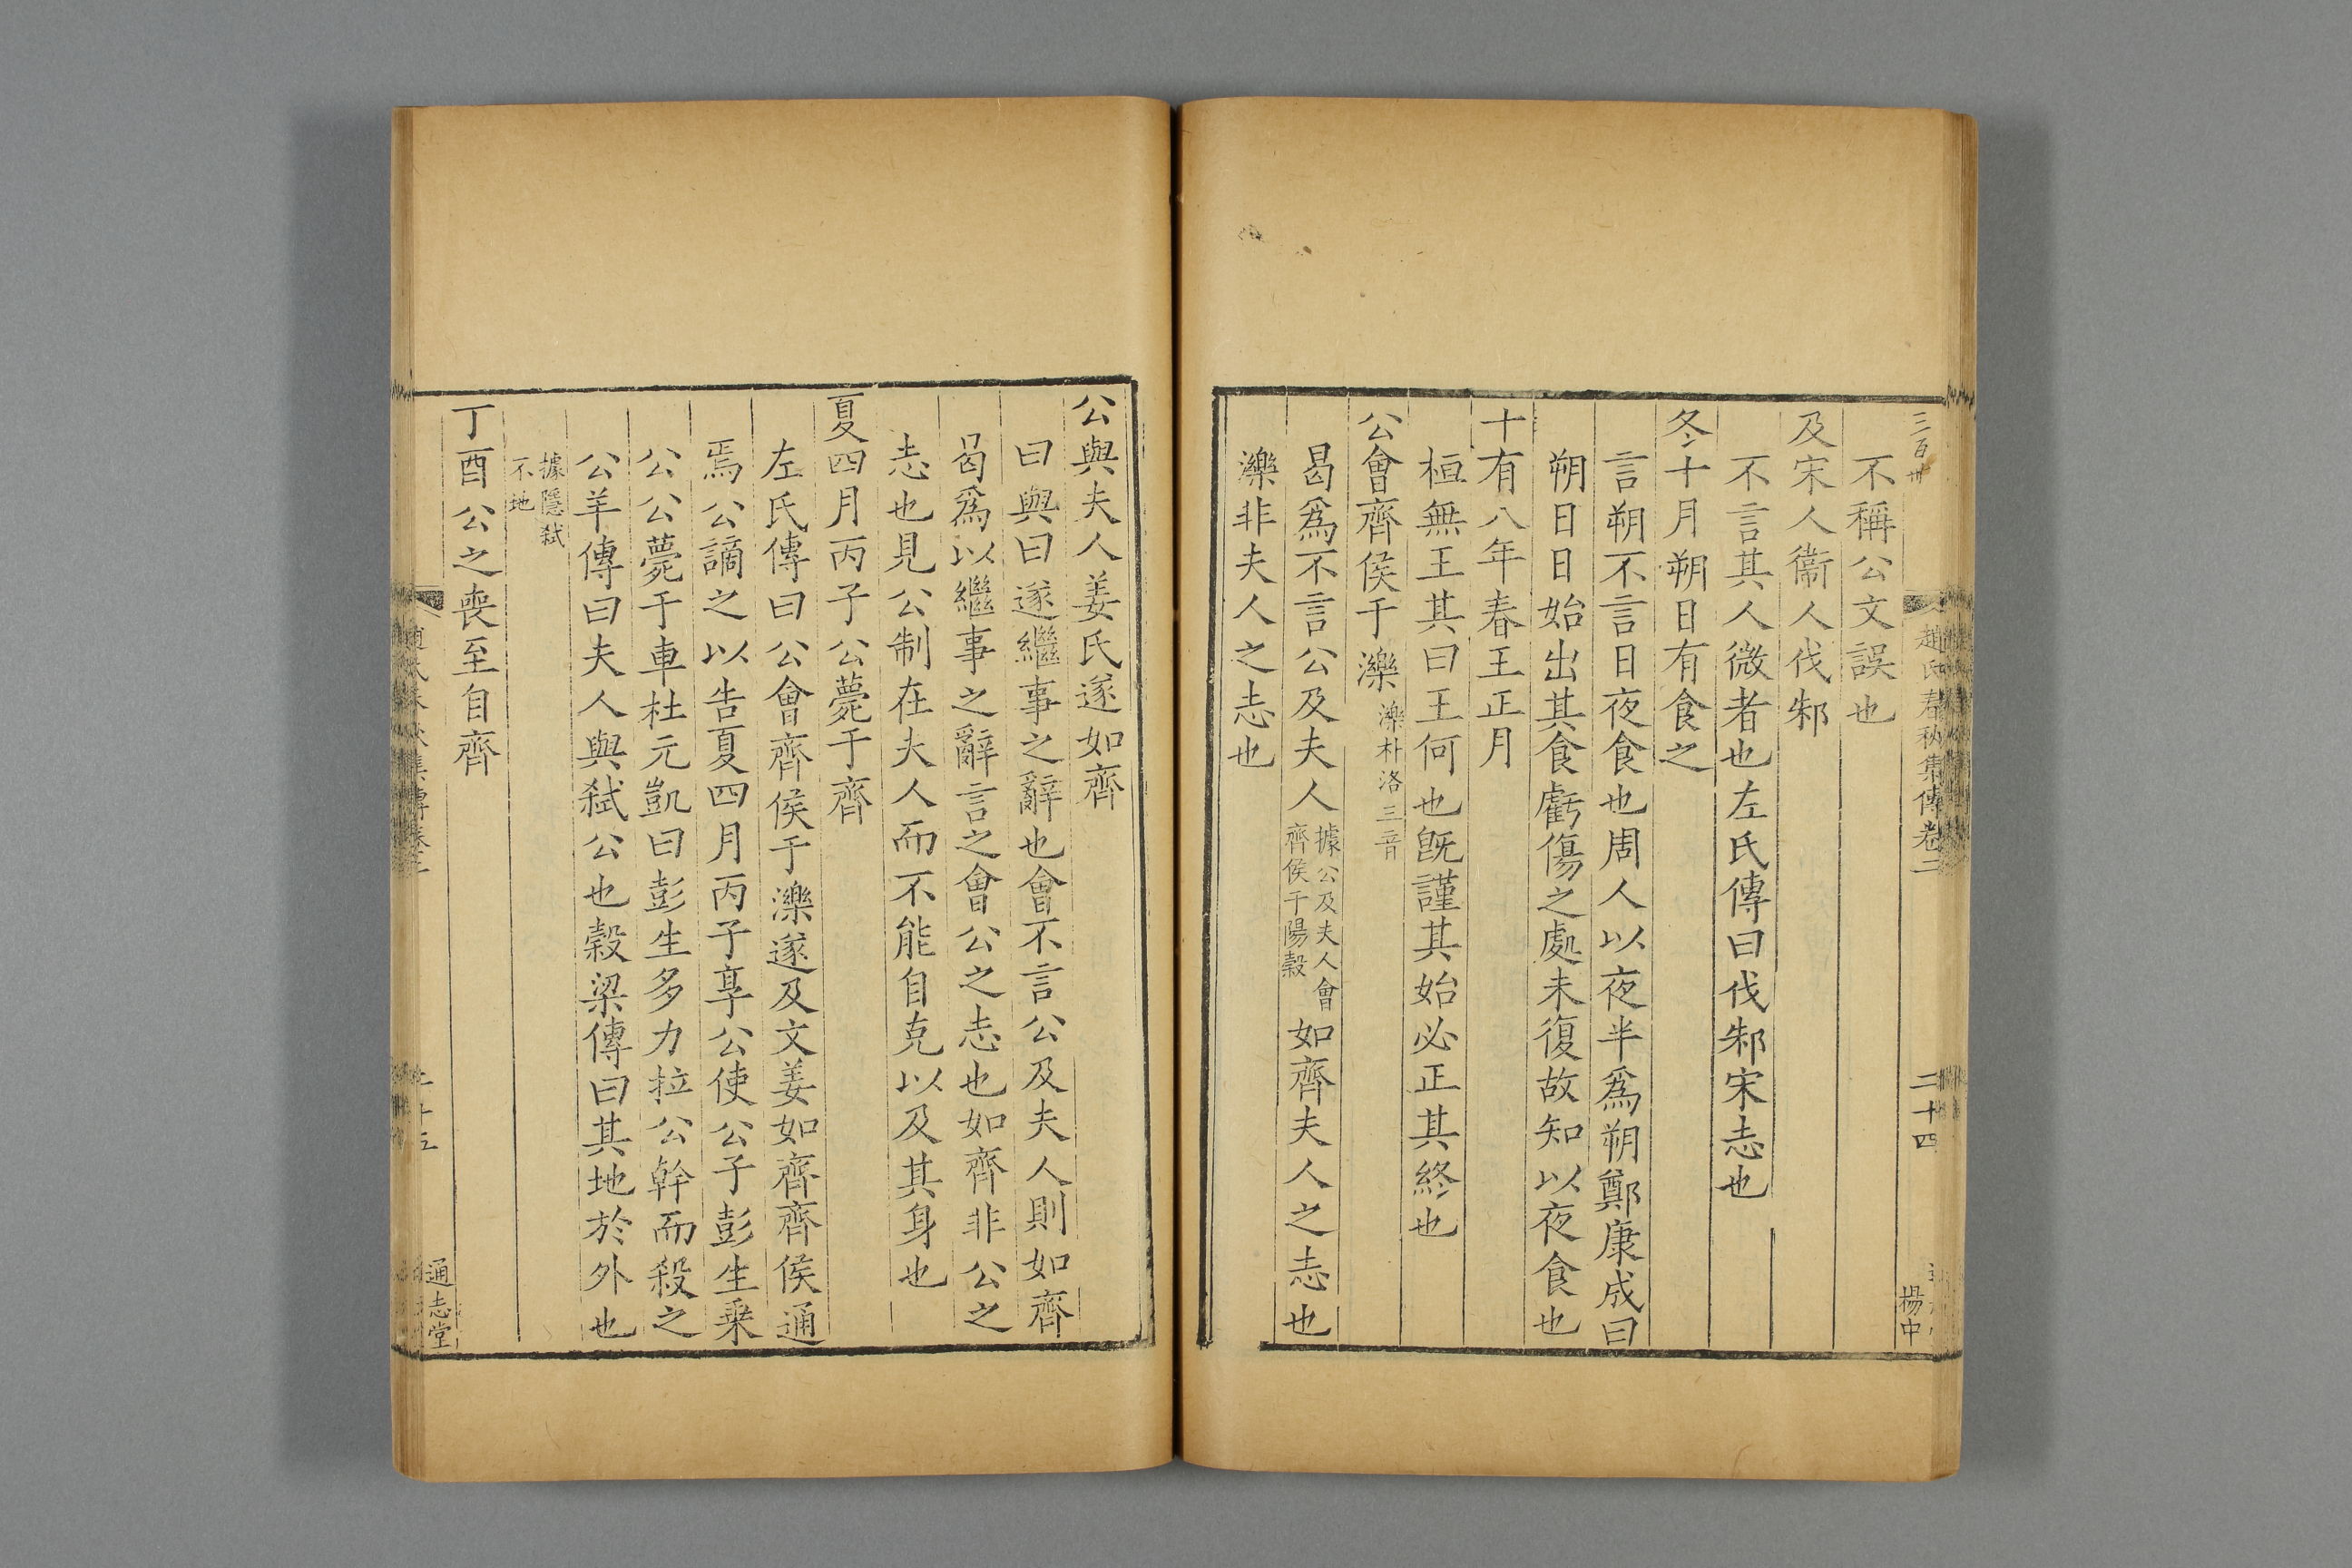 三百卅
趙氏春秋集傳卷二
二十四
楊中
不稱公文誤也
及宋人衞人伐邾
不言其人微者也左氏傳曰伐邾宋志也
冬十月朔日有食之
言朔不言日夜食也周人以夜半爲朔鄭康成曰
朔日日始出其食虧傷之處未復故知以夜食也
十有八年春王正月
桓無王其曰王何也旣謹其始必正其終也
公會齊侯于濼濼朴洛三音
曷爲不言公及夫人據公及夫人會齊侯于陽穀如齊夫人之志也
濼非夫人之志也
公與夫人姜氏遂如齊
曰與曰遂繼事之辭也會不言公及夫人則如齊
曷爲以繼事之辭言之會公之志也如齊非公之
志也見公制在夫人而不能自克以及其身也
夏四月丙子公薨于齊
左氏傳曰公會齊侯于濼遂及文姜如齊齊侯通
焉公謫之以告夏四月丙子享公使公子彭生乗
公公薨于車杜元凱曰彭生多力拉公幹而殺之
公羊傳曰夫人與弑公也穀梁傳曰其地於外也
據隱弑不地
丁酉公之喪至自齊
通志堂